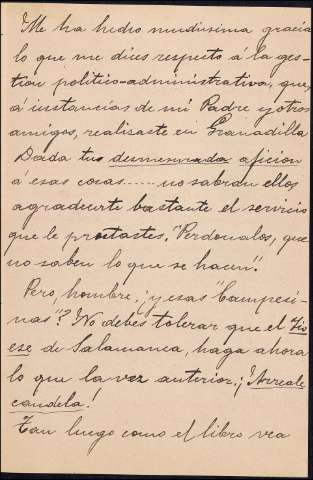 Me ha hecho muchísima gracia
lo que me dices respecto á la ges-
tion político-administrativa, que,
á instancias de mi Padre y otros
amigos, realizaste en Granadilla
Dada tus desmesurada aficion
á esas cosas..... no sabran ellos
agradecerte bastante el servicio
que le prestastes. "Perdonalos, que
no saben lo que se hacen".
Pero, hombre, ¡y esas "Campesi-
nas"? No debes tolerar que el
de Salamanca, haga ahora
lo que la vez anterior. ¡Arreale
candela!
Tan luego como el libro vea